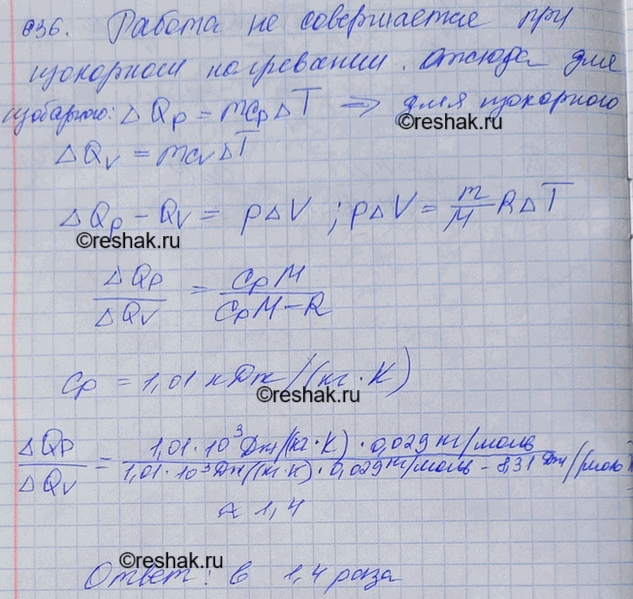 636. Работа не совершается при
изохорном нагревании. Отсюда для
изобарного: ΔQp = mcpΔT => для изохорного
©reshak.ru
ΔQv = mcvΔT
ΔQp - Qv = pΔV ; pΔV = m/M RΔT
©reshak.ru
ΔQp/ΔQv = CpM/(CpM - R)
Cp = 1,01 кДж/(кг·К)
©reshak.ru
ΔQp/ΔQv = 1,01·10³ Дж/(кг·К) · 0,029 кг/моль / 1,01·10³ Дж/(кг·К) · 0,029 кг/моль - 8,31 Дж/(моль
≈ 1,4
©reshak.ru
Ответ: в 1,4 раза